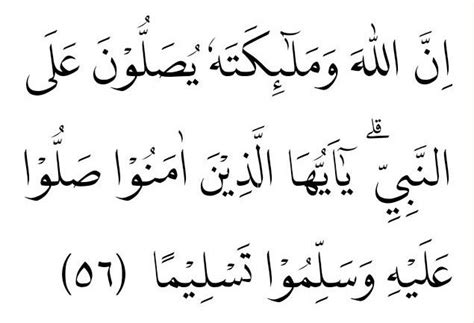 اِنَّ اللّٰهَ وَمَلٰۤىِٕكَتَهٗ يُصَلُّوْنَ عَلَى
النَّبِيِّۗ يٰٓاَيُّهَا الَّذِيْنَ اٰمَنُوْا صَلُّوْا
عَلَيْهِ وَسَلِّمُوْا تَسْلِيْمًا (٥٦)